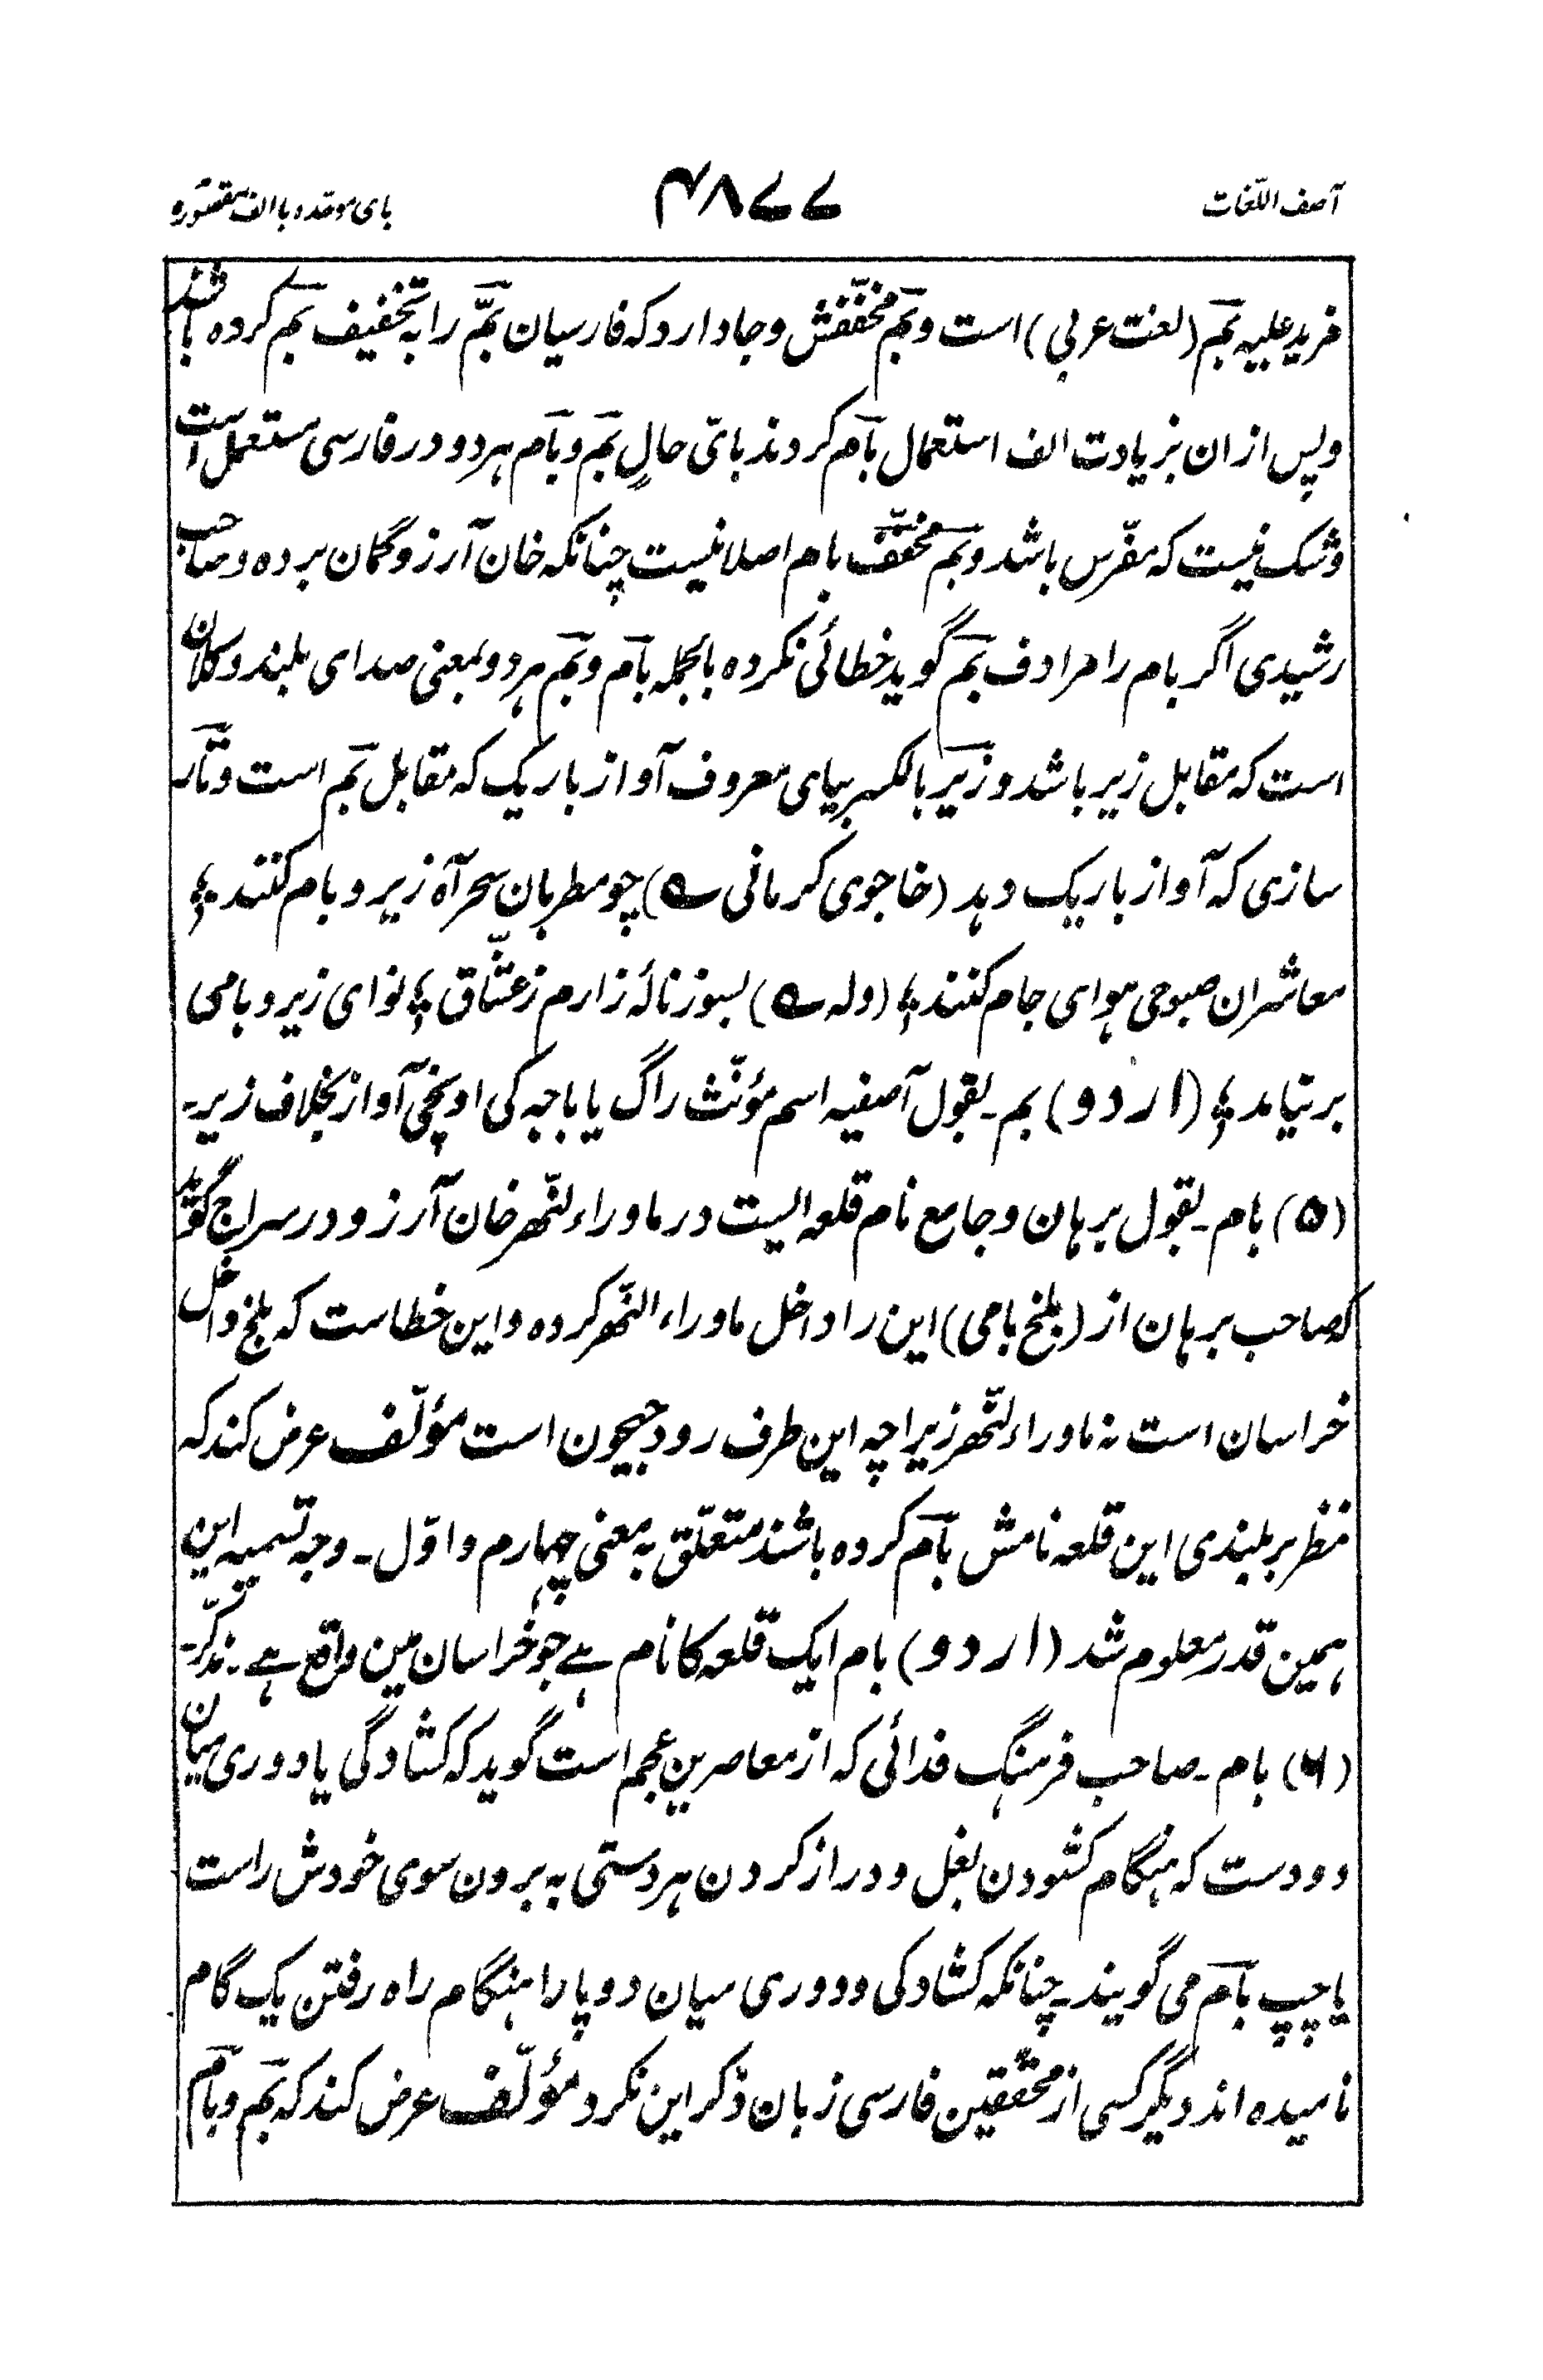 آصف اللّغات
۴۸۷۷
بای موحّده با الف مقصُوره
مزید علیہ بَم (لغت عربی) است و بَم مخفّفش و جا دارد کہ فارسیان بَمّ را بہ تخفیف بَم کردہ باشند
و پس ازان بزیادت الف استعمال بآم کردند باقی حالِ بَم و بآم ہر دو در فارسی مستعمل است
و شک نیست کہ مفرّس باشد و بَم مخفّف بام اصلا نیست چنانکہ خان آرزو گمان بردہ و صاحب
رشیدی اگر بام را مرادف بَم گوید خطائی نکردہ بالجملہ بآم و بَم ہر دو بمعنی صدای بلند و کلان
است کہ مقابل زیر باشد و زیر بالکسر بیای معروف آواز باریک کہ مقابل بَم است و تار
سازی کہ آواز باریک دہد (خاجوی کرمانی ؎) چو مطربانِ سحر آہ زیر و بام کنند ؛
معاشران صبوحی ہوای جام کنند ؛ (ولہ ؎) بسوز نالۂ زارم ز عشّاق ؛ نوای زیر و بامی
بر نیامد ؛ (اردو) بم ۔ بقول آصفیہ اسم مؤنّث راگ یا باجہ کی اونچی آواز بخلاف زیر ۔
(۵) بام ۔ بقول برہان و جامع نام قلعہ ایست در ماوراء لنّھر خان آرزو در سراج گوید
کہ صاحب برہان از (بلخ بامی) این را داخل ماوراء النّھر کردہ و این خطاست کہ بلخ داخل
خراسان است نہ ماوراء لنّھر زیراچہ این طرف رود جیحون است مؤلّف عرض کند کہ
نظر بر بلندی این قلعہ نامش بآم کردہ باشند متعلّق بہ معنی چہارم و اوّل ۔ وجہ تسمیہ این
ہمین قدر معلوم شد (اردو) بام ایک قلعہ کا نام ہے جو خراسان مین واقع ہے ۔ مذکّر ۔
(۶) بام ۔ صاحب فرہنگ فدائی کہ از معاصرین عجم است گوید کہ کشادگی یا دوری میان
دو دست کہ ہنگام کشودن بغل و دراز کردن ہر دستی بہ برون سوی خودش راست
یا چپ بآم می گویند ۔ چنانکہ کشادگی و دوری میان دو پا را ہنگام راہ رفتن یک گام
نامیدہ اند دیگر کسی از محقّقین فارسی زبان ذکر این نکرد مؤلّف عرض کند کہ بَم و بآم